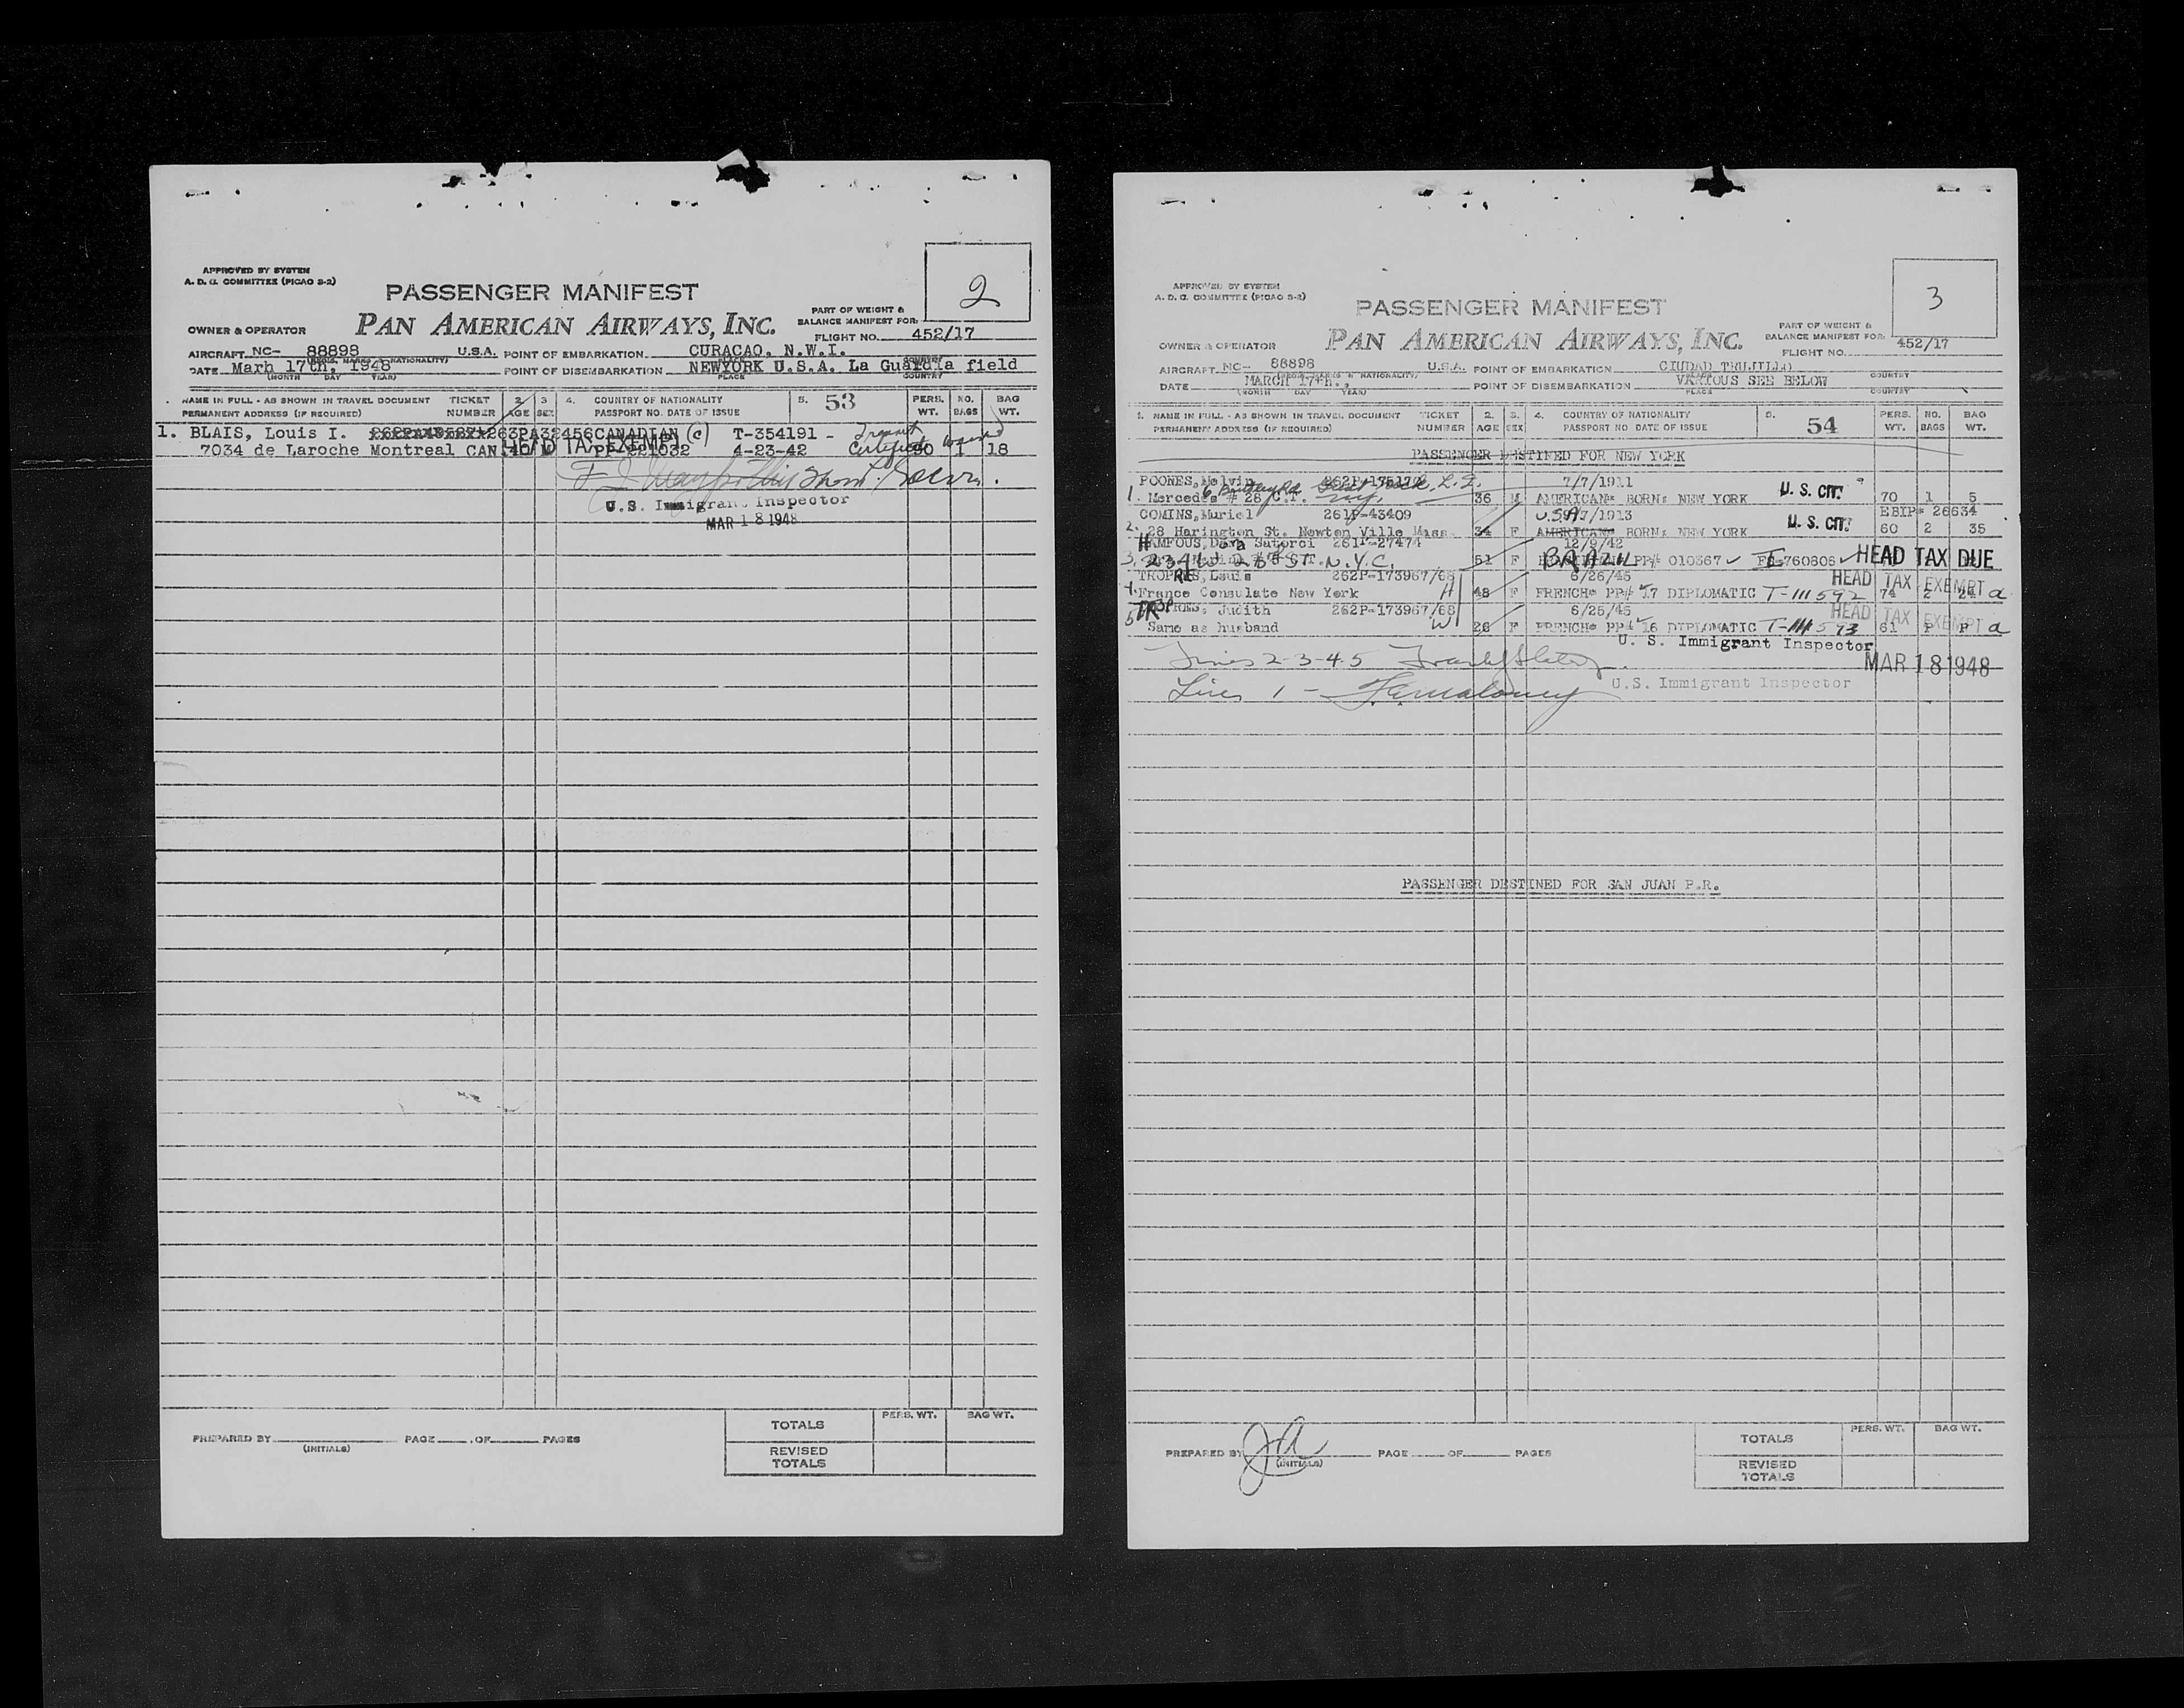 APPROVED BY SYSTEM
A. D. G. COMMITTEE (PICAO S-2)
2
PASSENGER MANIFEST
PAN AMERICAN AIRWAYS, INC.
PART OF WEIGHT &
BALANCE MANIFEST FOR:
OWNER & OPERATOR
FLIGHT NO. 452/17
AIRCRAFT NC- 88898 U.S.A. POINT OF EMBARKATION CURACAO. N.W.I.
(REGIS. MARKS & NATIONALITY) PLACE COUNTRY
DATE Marh 17th, 1948 POINT OF DISEMBARKATION NEWYORK U.S.A. La Guardia field
(MONTH DAY YEAR) PLACE COUNTRY
NAME IN FULL - AS SHOWN IN TRAVEL DOCUMENT TICKET 2. 3 4. COUNTRY OF NATIONALITY 5. 53 PERS. NO. BAG
PERMANENT ADDRESS (IF REQUIRED) NUMBER AGE SEX PASSPORT NO. DATE OF ISSUE WT. BAGS WT.
1. BLAIS, Louis I. 263PA32456 CANADIAN (c) T-354191 - Transit
7034 de Laroche Montreal CAN 40 M PP-221032 4-23-42 Certificate 90 1 18
HEAD TAX EXEMPT
U.S. Immigrant Inspector
MAR 18 1948
TOTALS PERS. WT. BAG WT.
PREPARED BY (INITIALS) PAGE OF PAGES
REVISED
TOTALS
APPROVED BY SYSTEM
A. D. G. COMMITTEE (PICAO S-2)
3
PASSENGER MANIFEST
PAN AMERICAN AIRWAYS, INC.
PART OF WEIGHT &
BALANCE MANIFEST FOR:
OWNER & OPERATOR
FLIGHT NO. 452/17
AIRCRAFT NC- 88898 U.S.A. POINT OF EMBARKATION CIUDAD TRUJILLO
(REGIS. MARKS & NATIONALITY) PLACE COUNTRY
DATE MARCH 17th., POINT OF DISEMBARKATION VARIOUS SEE BELOW
(MONTH DAY YEAR) PLACE COUNTRY
1. NAME IN FULL - AS SHOWN IN TRAVEL DOCUMENT TICKET 2. 3. 4. COUNTRY OF NATIONALITY 5. 54 PERS. NO. BAG
PERMANENT ADDRESS (IF REQUIRED) NUMBER AGE SEX PASSPORT NO DATE OF ISSUE WT. BAGS WT.
PASSENGER DESTINED FOR NEW YORK
POONES, Melvin 7/7/1911
1. Mercedes # 28 C.T. 36 M AMERICAN: BORN: NEW YORK U. S. CIT. 70 1 5
COMINS, Muriel 261P-43409 U.S.A. 7/1913 EBIP# 26634
2. 28 Harington St. Newton Ville Mass 34 F AMERICAN: BORN: NEW YORK U. S. CIT. 60 2 35
HAMPOUS, Dora Satorci 261P-27474 12/9/42
3. N.Y.C. 51 F BRAZIL PP# 010367 760806 HEAD TAX DUE
TROPRES, Louis 262P-173967/68 6/26/45 HEAD TAX EXEMPT
4. France Consulate New York H 48 F FRENCH: PP# 17 DIPLOMATIC T-111592 74 2 24 a
TROPRES, Judith 262P-173967/68 6/25/45 HEAD TAX EXEMPT
5 Same as husband W 26 F FRENCH: PP# 16 DIPLOMATIC T-111593 61 P P a
U. S. Immigrant Inspector
Lines 2-3-4-5
MAR 18 1948
Lines 1 -
U.S. Immigrant Inspector
PASSENGER DESTINED FOR SAN JUAN P.R.
TOTALS PERS. WT. BAG WT.
PREPARED BY JA (INITIALS) PAGE OF PAGES
REVISED
TOTALS